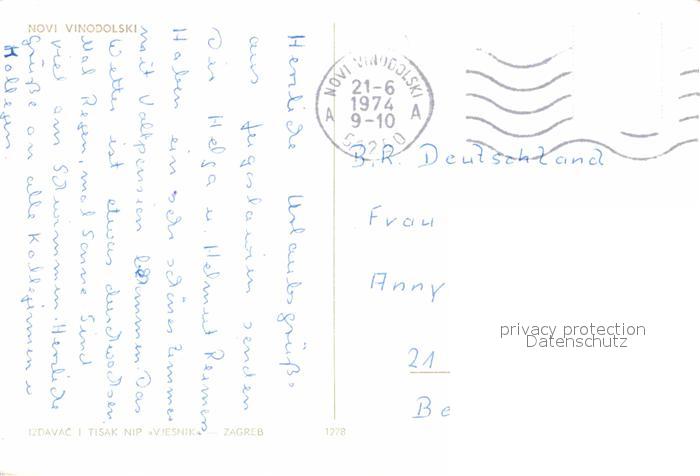 NOVI VINODOLSKI
Herzliche Urlaubsgrüße
aus Jugoslawien senden
Dir Helga u. Helmut
Haben ein sehr schönes Zimmer
mit Vollpension bekommen. Das
Wetter ist etwas durchwachsen
Mal Regen, mal Sonne Sind
viel am Schwimmen. Herzliche
Grüße an alle Kolleginnen u
Kollegen.
IZDAVAČ I TISAK NIP «VJESNIK» — ZAGREB
1278
NOVI VINODOLSKI
21-6
1974
9-10
A A
B.R. Deutschland
Frau
Anny
21
Be
privacy protection
Datenschutz